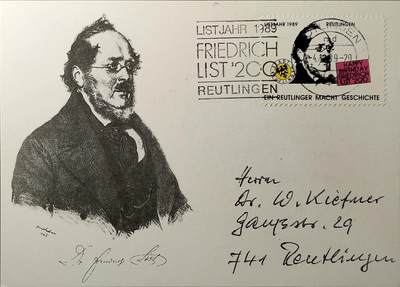 LISTJAHR 1989
FRIEDRICH
LIST '200
REUTLINGEN
LISTJAHR 1989 REUTLINGEN
HAPPY
BIRTHDAY
FRIEDRICH
EIN REUTLINGER MACHT GESCHICHTE
Herrn
Dr. W. Kiefner
29
741 Reutlingen
Dr Friedrich List